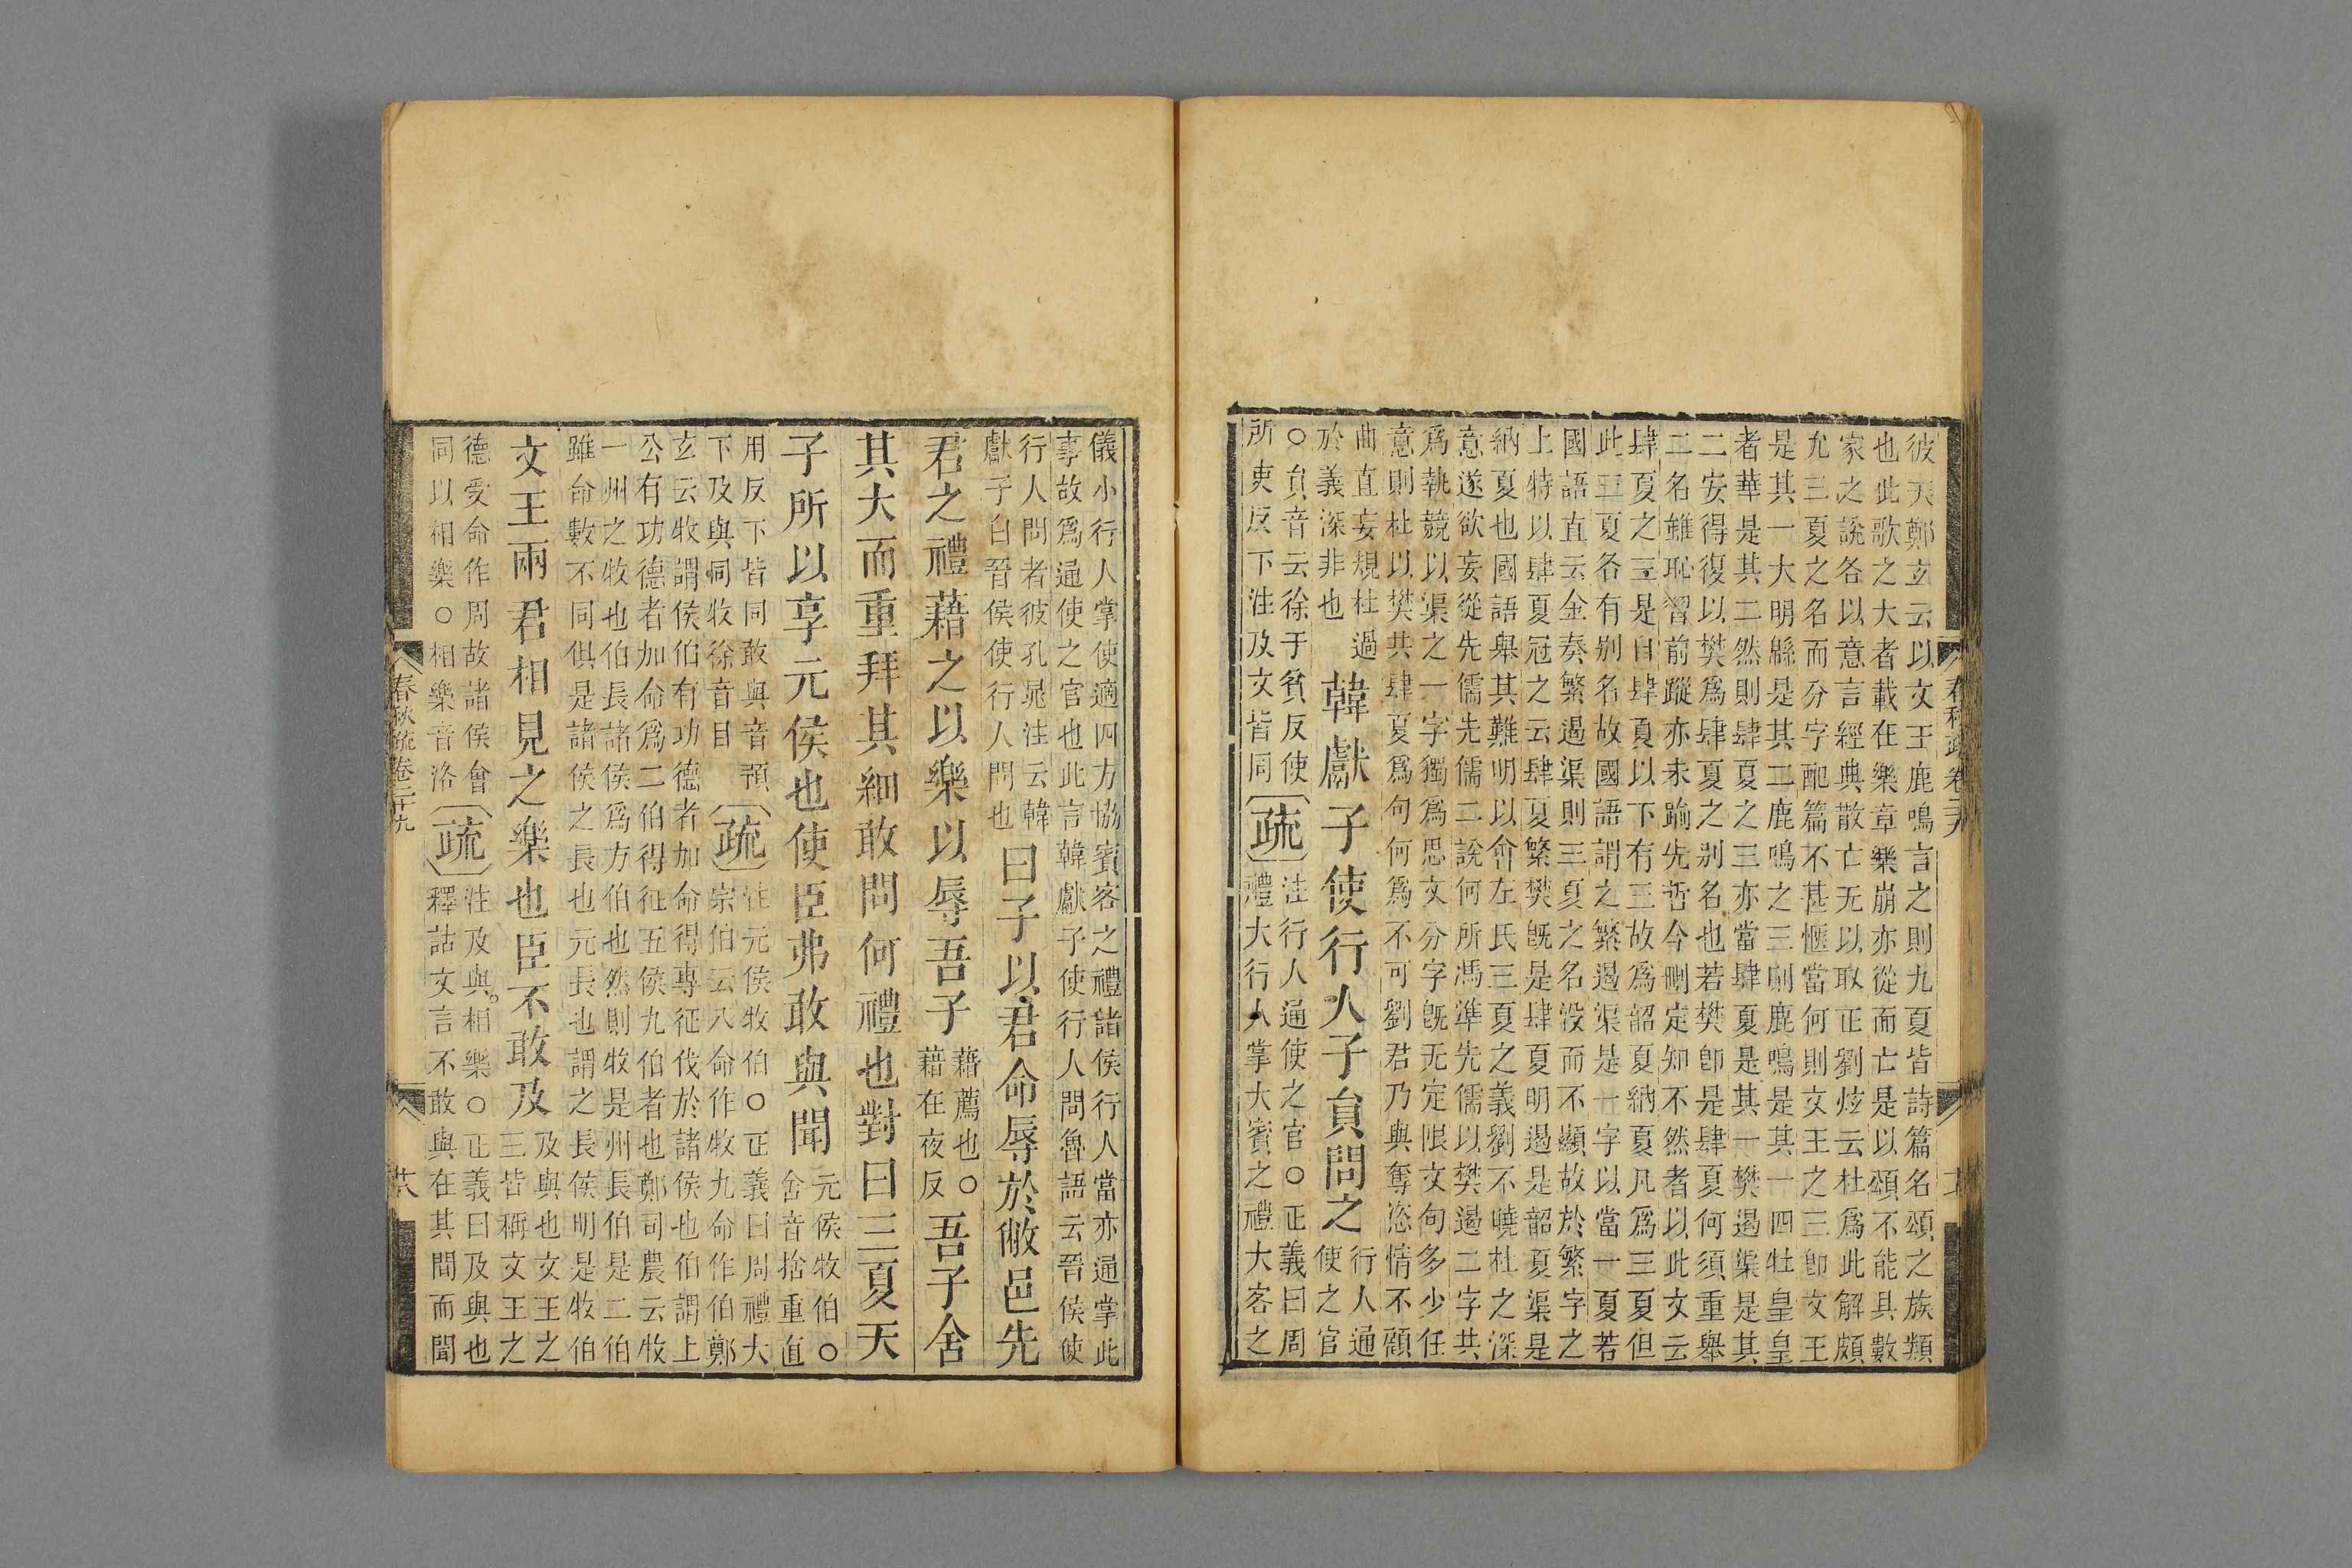 彼天鄭玄云以文王鹿鳴言之則九夏皆詩篇名頌之族類
也此歌之大者載在樂章樂崩亦從而亡是以頌不能具數
家之說各以意言經典散亡无以取正劉炫云杜爲此解頗
允三夏之名而分字配篇不甚愜當何則文王之三卽文王
是其一大明緜是其二鹿鳴之三則鹿鳴是其一四牡皇皇
者華是其二然則肆夏之三亦當肆夏是其一樊遏渠是其
二安得復以樊爲肆夏之别名也若樊卽是肆夏何須重舉
二名雖恥習前蹤亦未踰先哲今刪定知不然者以此文云
肆夏之三是自肆夏以下有三故爲韶夏納夏凡爲三夏但
此三夏各有别名故國語謂之繁遏渠是一字以當一夏若
國語直云金奏繁遏渠則三夏之名没而不顯故於繁字之
上特以肆夏冠之云肆夏繁樊旣是肆夏明遏是韶夏渠是
納夏也國語舉其難明以會左氏三夏之義劉不曉杜之深
意遂欲妄從先儒先儒二說何所馮準先儒以樊遏二字共
爲執競以渠之一字獨爲思文分字旣无定限文句多少任
意則杜以樊共肆夏爲句何爲不可劉君乃與奪恣情不顧
曲直妄規杜過
於義深非也
韓獻子使行人子員問之
行人通
使之官
○員音云徐于貧反使
所吏反下注及文皆同
疏
注行人通使之官○正義曰周
禮大行人掌大賓之禮大客之
儀小行人掌使適四方協賓客之禮諸侯行人當亦通掌此
事故爲通使之官也此言韓獻子使行人問魯語云晉侯使
行人問者彼孔晁注云韓
獻子白晉侯使行人問也
曰子以君命辱於敝邑先
君之禮藉之以樂以辱吾子
藉薦也○
藉在夜反
吾子舍
其大而重拜其細敢問何禮也對曰三夏天
子所以享元侯也使臣弗敢與聞
元侯牧伯○
舍音捨重直
用反下皆同敢與音預
下及與同牧徐音目
疏
注元侯牧伯○正義曰周禮大
宗伯云八命作牧九命作伯鄭
玄云牧謂侯伯有功德者加命得專征伐於諸侯也伯謂上
公有功德者加命爲二伯得征五侯九伯者也鄭司農云牧
一州之牧也伯長諸侯爲方伯也然則牧是州長伯是二伯
雖命數不同俱是諸侯之長也元長也謂之長侯明是牧伯
文王兩君相見之樂也臣不敢及
及與也文王之
三皆稱文王之
德受命作周故諸侯會
同以相樂○相樂音洛
疏
注及與相樂○正義曰及與也
釋詁文言不敢與在其間而聞
春秋疏卷二十九